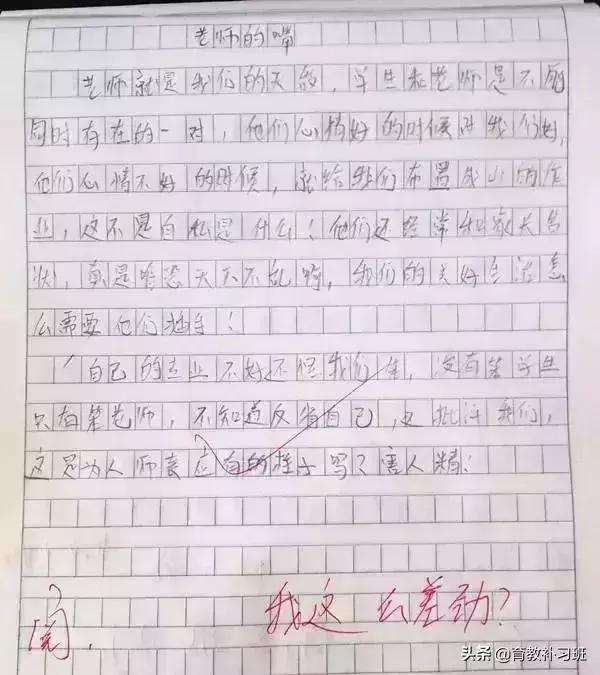 老师的嘴
老师就是我们的天敌，学生和老师是不能
同时存在的一对，他们心情好的时候对我们好，
他们心情不好的时候，就给我们布置成山的作
业，这不是自私是什么！他们还经常和家长告
状，真是唯恐天下不乱啊，我们的美好生活怎
么需要他们插手！
自己的专业不好还怪我们笨，没有笨学生
只有笨老师，不知道反省自己，还批评我们，
这是为人师表应有的样子吗？害人精！
阅。
我这么差劲？
头条@育教补习班